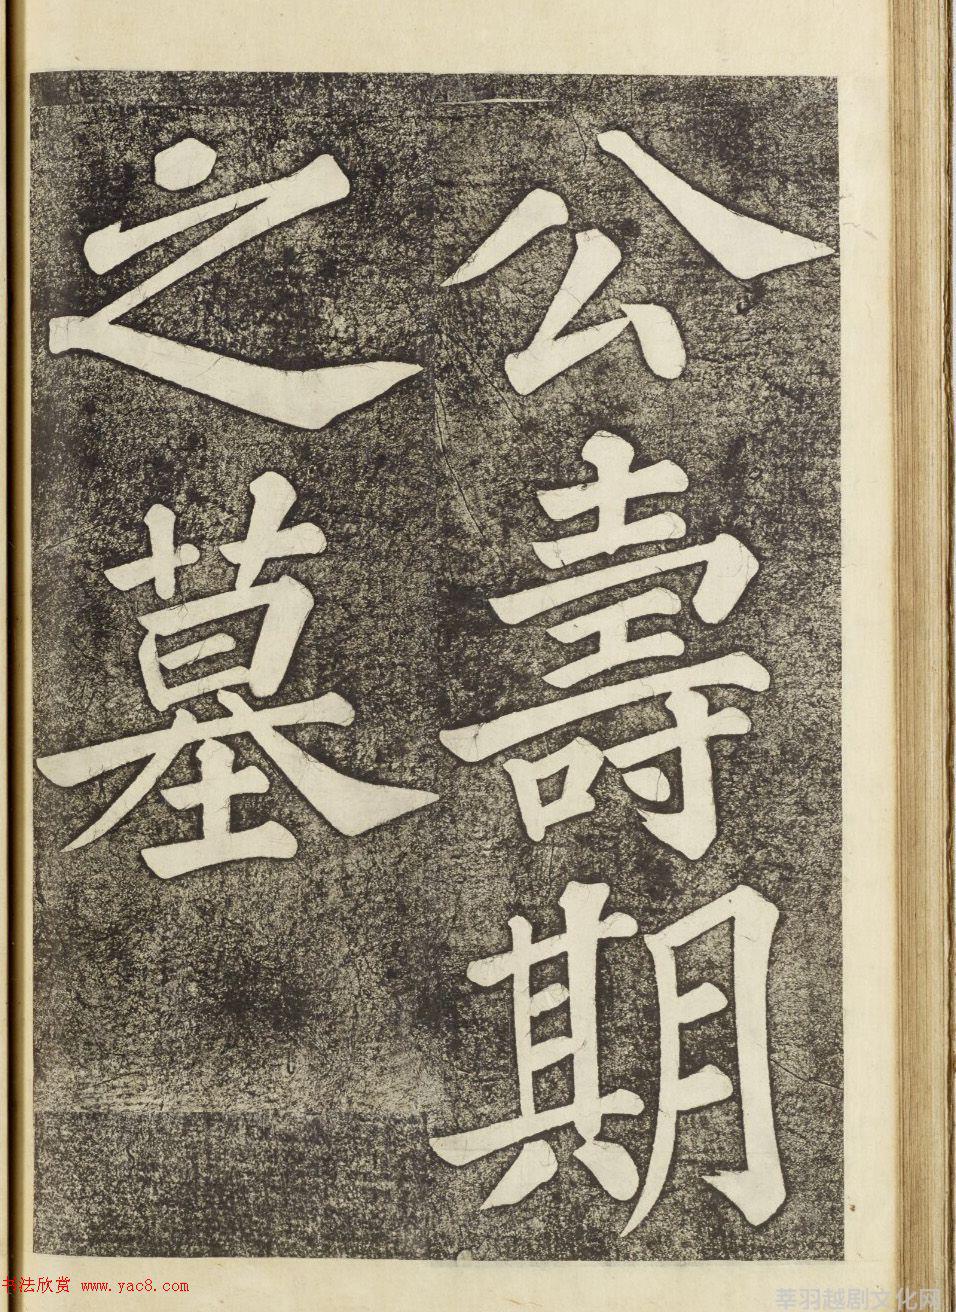 公壽期
之墓
书法欣赏 www.yac8.com
莘羽越剧文化网